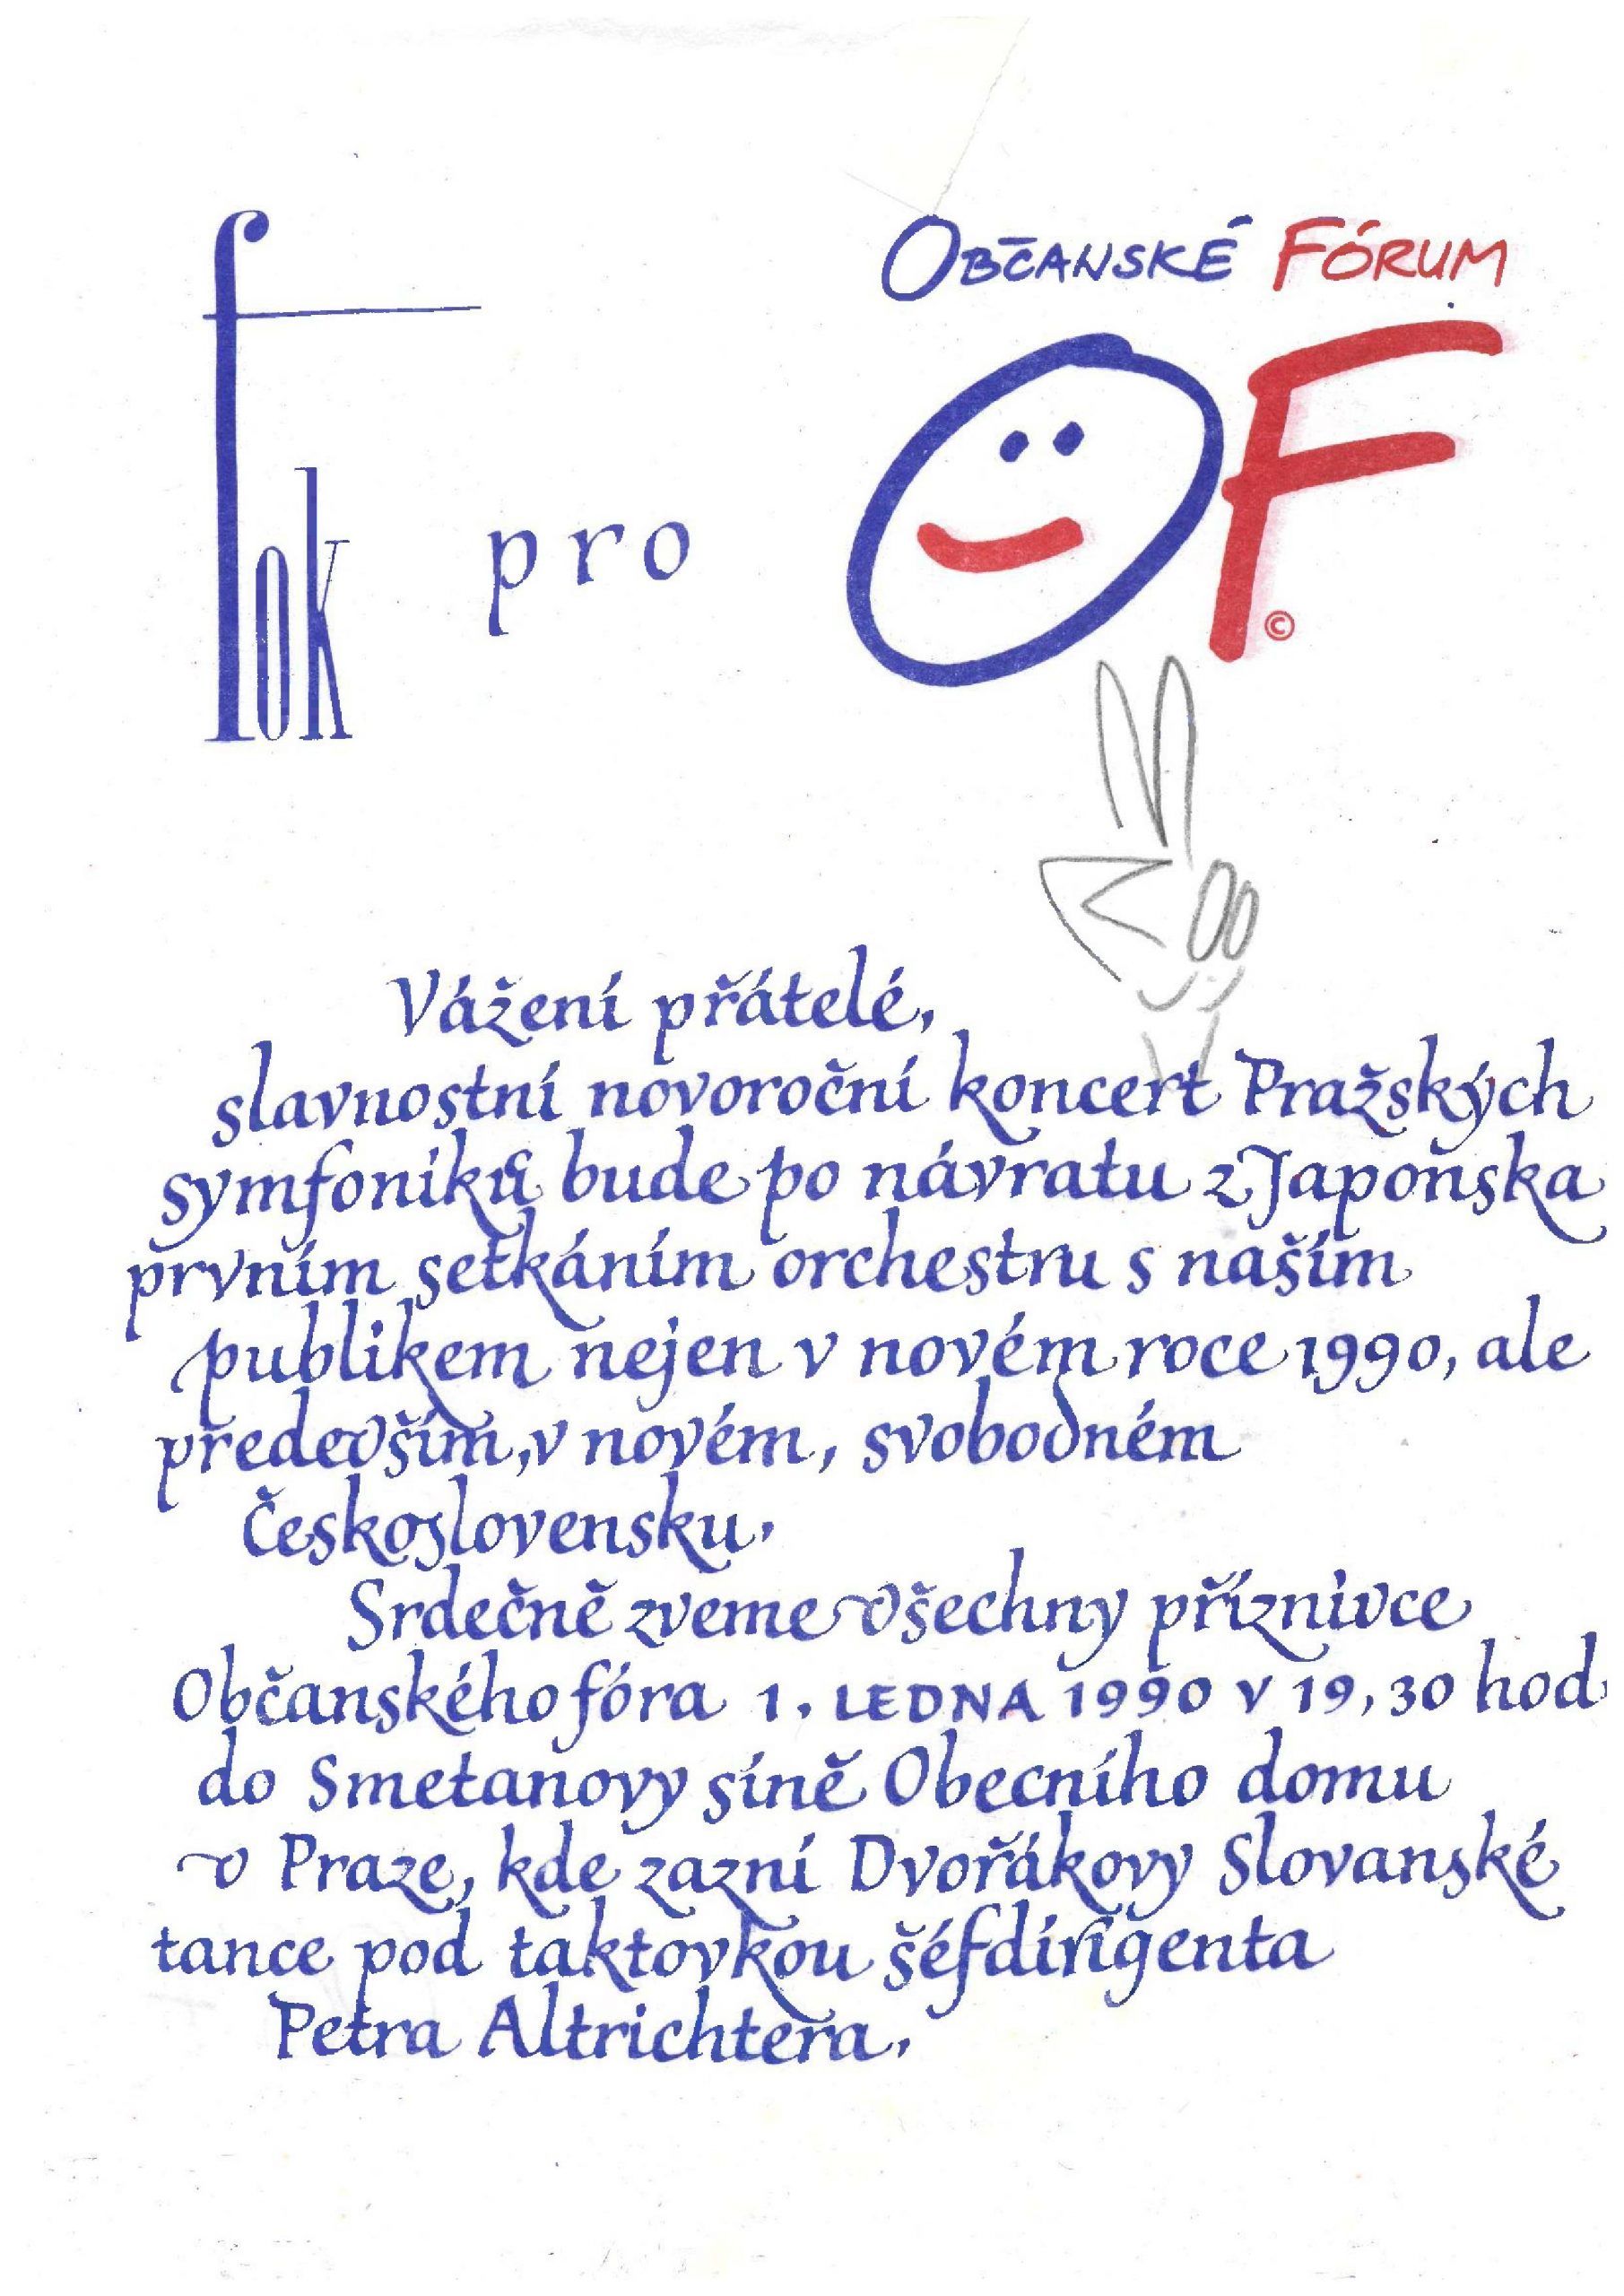 OBČANSKÉ FÓRUM
fok pro OF
©
Vážení přátelé,
slavnostní novoroční koncert Pražských
symfoniků bude po návratu z Japonska
prvním setkáním orchestru s naším
publikem nejen v novém roce 1990, ale
především v novém, svobodném
Československu.
Srdečně zveme všechny příznivce
Občanského fóra 1. LEDNA 1990 v 19,30 hod.
do Smetanovy síně Obecního domu
v Praze, kde zazní Dvořákovy Slovanské
tance pod taktovkou šéfdirigenta
Petra Altrichtera.